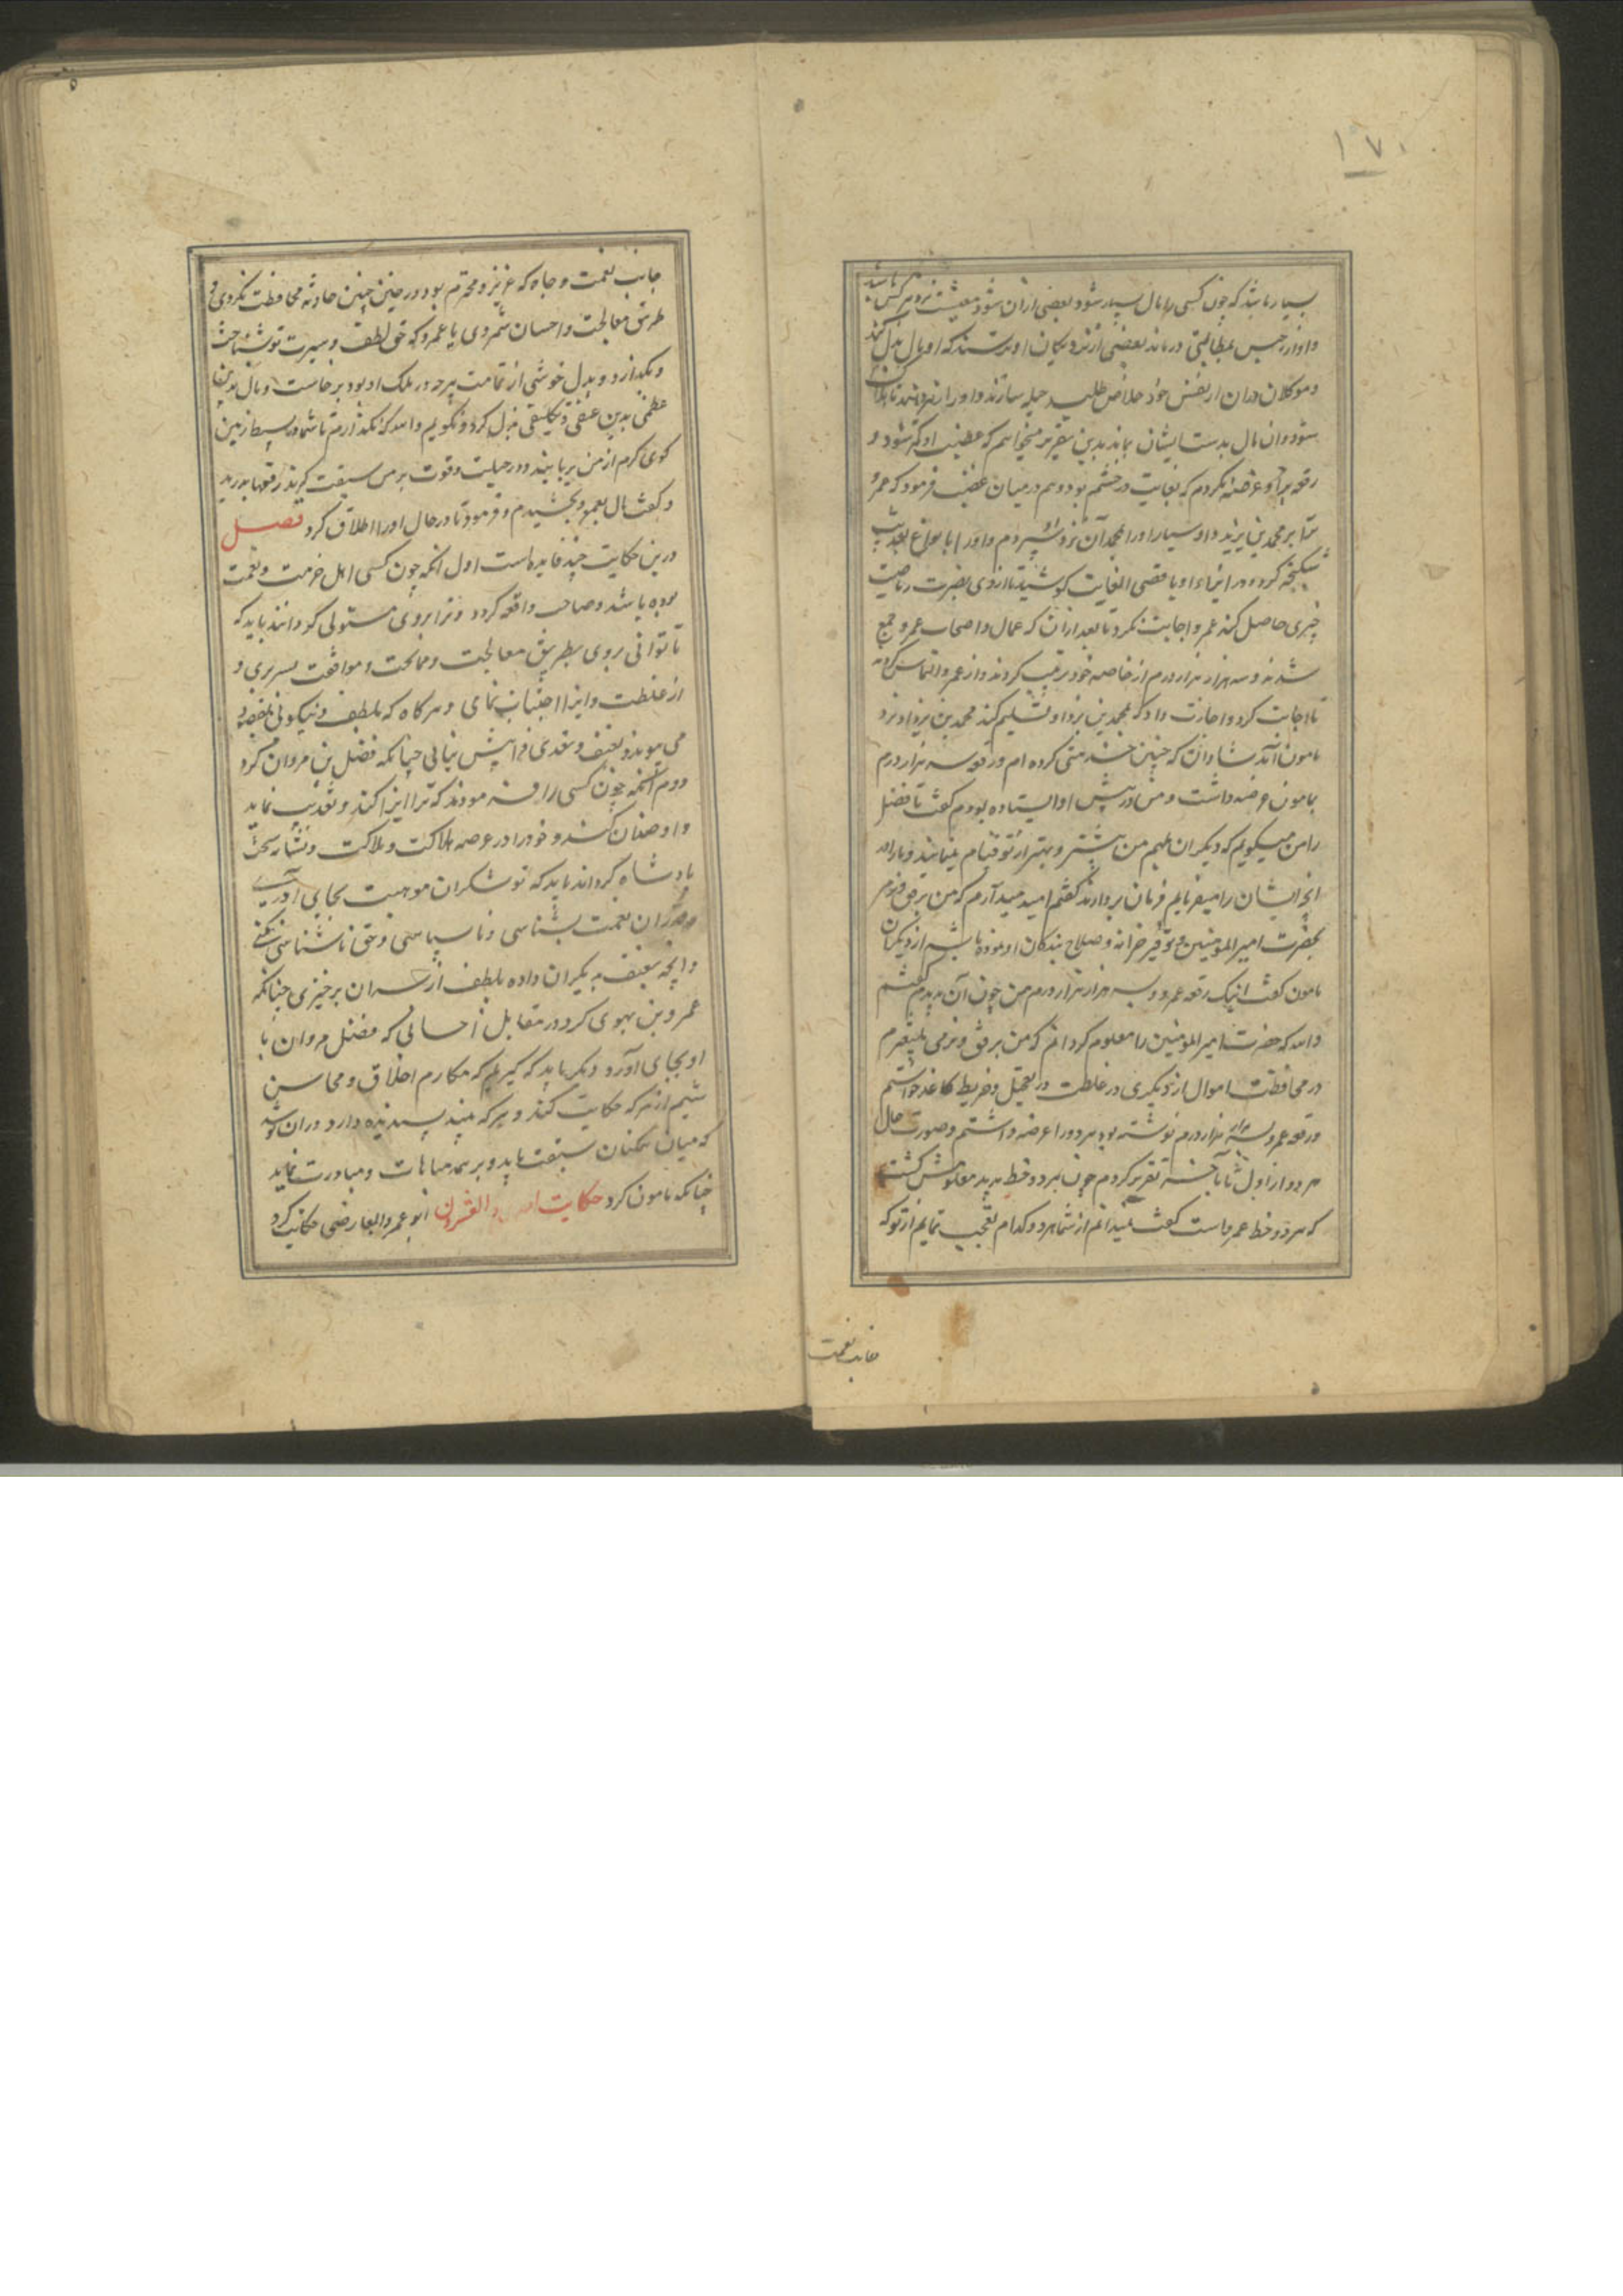 ۱۷۰
بسیار باشد که چون کسی را مال بسیار شود و بعضی ازان شود معیشت نزد هر کس باشد
و او از حبس بمطالبتی درماند بعضی از نزدیکان او ترسند که او مال بذل کند
و موکلان دران از نفس خود خلاص طلبد حیله سازند و او را
شود و ان مال بدست ایشان بماند بدین تقریر میخواهم که او کم شود و
رقعه برو عرضه نکردم که بغایت در خشم بود و هم در میان غضب فرمود که عمرو
را بر محمد بن یزید داد بسیار او را بمحمد آن نزد او سپردم و او را بانواع تعذیب
شکنجه کرد و در ایذاء او باقصی الغایت کوشید تا از وی بضرب
چیزی حاصل کند عمرو اجابت نکرد تا بعد ازان که عمال و اصحاب عمرو جمع
شدند و سه هزار هزار درم از خاصه خود ترتیب کردند و از عمرو التماس کردند
تا اجابت کرد و اجازت داد که بمحمد بن یزداد تسلیم کند محمد بن یزداد نزد
مامون آمد شادان که چنین خدمتی کرده ام و رقعه سه هزار درم
بمامون عرضه داشت و من در پیش او ایستاده بودم گفت تا فضل
را من میگویم که دیگران بمهم من بیشتر و بهتر از تو قیام مینمایند و ما را در
انچ ایشان را میفرمایم فرمان بردارند گفتم امید میدارم که من برفق و نرم
بحضرت امیر المومنین و توفیر خزانه و صلاح بندگان او موده باشم از دیگران
مامون گفت اینک رقعه عمرو و سه هزار هزار درم من چون آن بدیدم گفتم
والله که حضرت امیر المومنین را معلوم گردانم که من برفق و نرمی
در محافظت اموال از دیگری در غلظت در تعجیل و خریطه کاغذ خواستم
و رقعه عمرو بسه هزار هزار درم نوشته بود هر دو را عرضه داشتم و صورت حال
هر دو از اول تا بآخر تقریر کردم چون هر دو خط بدید معلومش گشت
که هر دو خط عمرو است گفت نمیدانم از شما هر دو کدام تعجب نمایم از تو که
جانب نعمت
جانب نعمت و جاه که عزیز و محترم بود در حین چنین حادثه محافظت نکردی و
طریق معالجت و احسان سپردی یا عمرو که حق لطف و سیرت تو شناخت
و بگذارد و بدل خوشی از تمامت هر چه در ملک او بود برخاست و مال بدین
عظمی بدین عنفی و تکلیفی بذل کرد و نگویم والله که نگذارم تا شما در بسیط زمین
گوی کرم از من بربایید و در حیلت و قوت بر من سبقت گیرید رقعها بدرید
و گفت مال بعمرو بخشیدم و فرمود تا در حال او را اطلاق کرد فصل
درین حکایت چند فایده است اول انکه چون کسی اهل حرمت و نعمت
بوده باشد و صاحب واقعه گردد و ترا بروی مستولی گردانند باید که
تا توانی بروی بطریق معالجت و ممالحت و موافقت بسر بری و
از غلظت و ایذا اجتناب نمای و هر گاه که بلطف و نیکوئی بمقصود
می پیوندد بعنف و تعدی فرا پیش نیائی چنانکه فضل بن مروان کرد
دوم انکه چون کسی را فرموده بوند که ترا ایذا کند و تعذیب نماید
و او ضمان کند و خود را در عرصه هلاکت و ملاکت و نشانه سخط
بادشاه گرداند باید که تو شکر ان موهبت بجای آوری
و قدر ان نعمت بشناسی و ناسپاسی و حق ناشناسی نکنی
و انچه بعنف بدیگران داده بلطف از سر ان برخیزی چنانکه
عمرو بن نهوی کرد در مقابل احسانی که فضل مروان با
او بجای آورد و دیگر باید که کریم که مکارم اخلاق و محاسن
شیم از هر که حکایت کنند و هر که بیند پسندیده دارد و دران کوشد
که میان همکنان سبقت یابد و بر همه مباهات و مبادرت نماید
چنانکه مامون کرد حکایت و العشرون ابو عمرو العارضی حکایت کرد